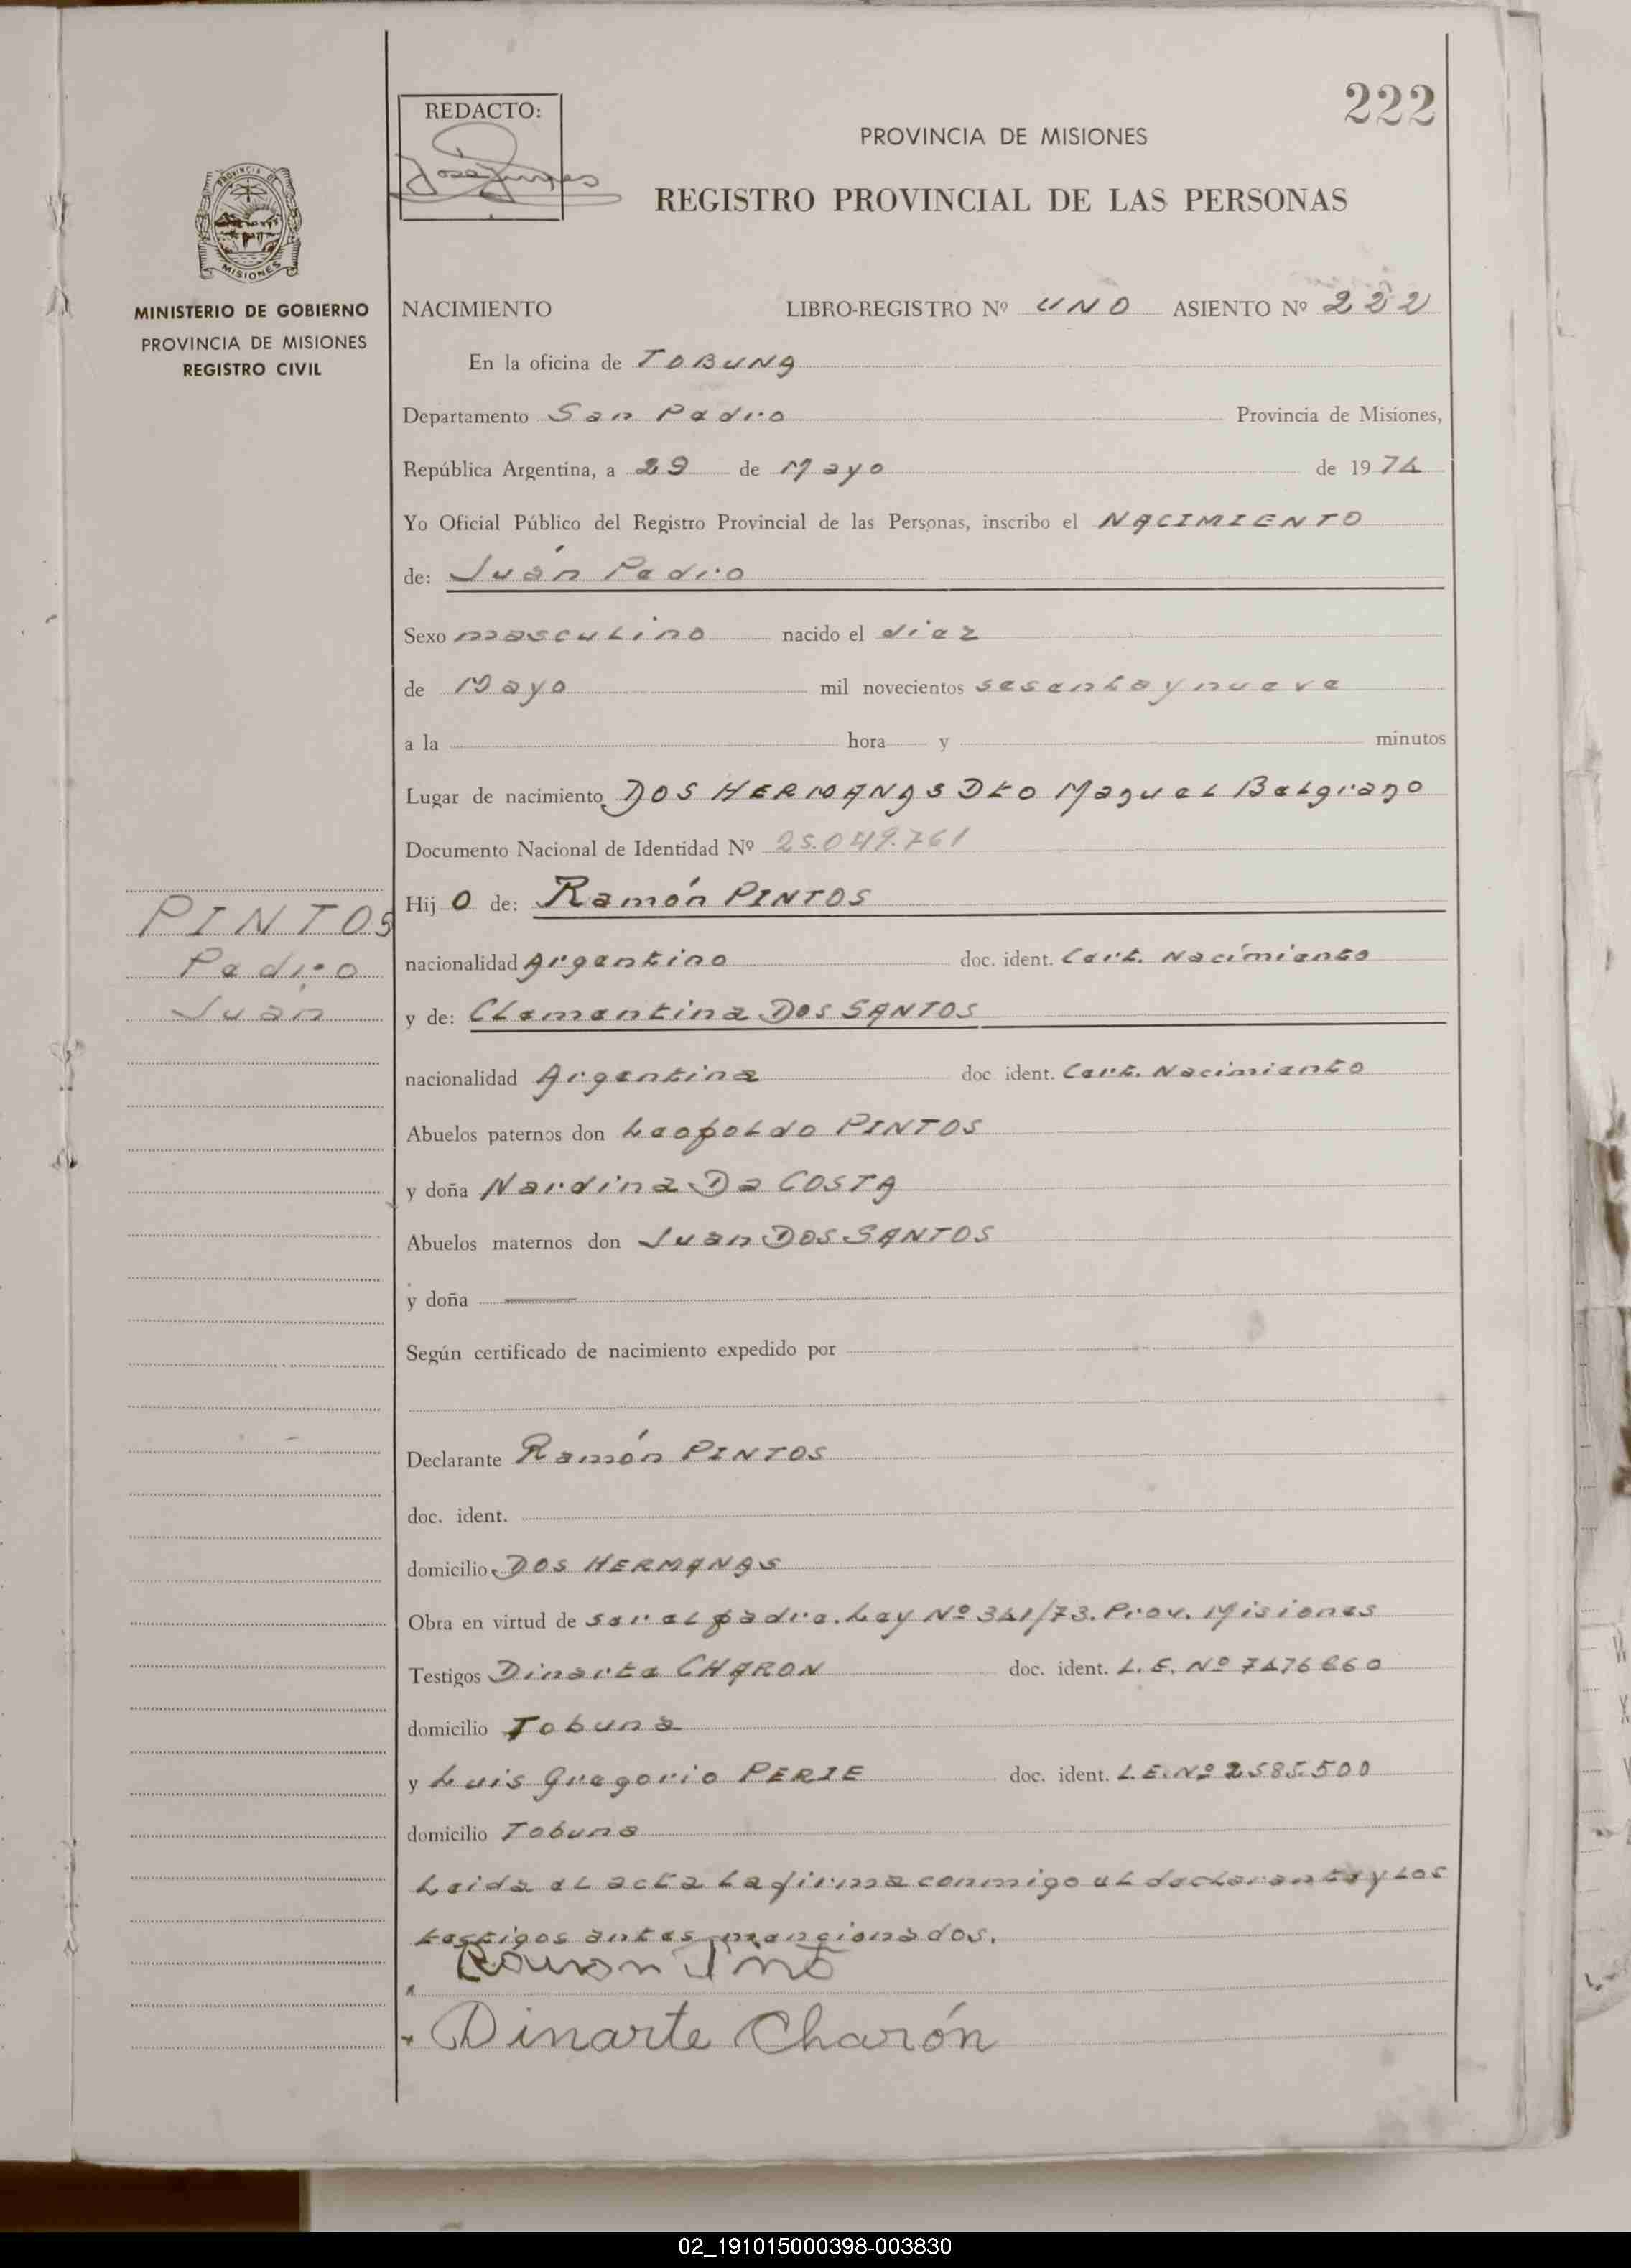 222
REDACTO:
PROVINCIA DE MISIONES
REGISTRO PROVINCIAL DE LAS PERSONAS
PROVINCIA DE
MISIONES
MINISTERIO DE GOBIERNO
PROVINCIA DE MISIONES
REGISTRO CIVIL
NACIMIENTO LIBRO-REGISTRO Nº UNO ASIENTO Nº 222
En la oficina de TOBUNA
Departamento San Pedro Provincia de Misiones,
República Argentina, a 29 de Mayo de 1974
Yo Oficial Público del Registro Provincial de las Personas, inscribo el NACIMIENTO
de: Juán Pedro
Sexo masculino nacido el diez
de Mayo mil novecientos sesenta y nueve
a la hora y minutos
Lugar de nacimiento DOS HERMANAS Dto Manuel Belgrano
Documento Nacional de Identidad Nº 25.049.761
Hijo de: Ramón PINTOS
PINTOS
Pedro
Juán
nacionalidad Argentino doc. ident. Cert. Nacimiento
y de: Clementina Dos SANTOS
nacionalidad Argentina doc. ident. Cert. Nacimiento
Abuelos paternos don Leopoldo PINTOS
y doña Nardina Da COSTA
Abuelos maternos don Juan DOS SANTOS
y doña
Según certificado de nacimiento expedido por
Declarante Ramón PINTOS
doc. ident.
domicilio DOS HERMANAS
Obra en virtud de ser el padre. Ley Nº 341/73. Prov. Misiones
Testigos Dinarte CHARON doc. ident. L.E. Nº 7476660
domicilio Tobuna
y Luis Gregorio PERIE doc. ident. L.E. Nº 2585.500
domicilio Tobuna
Leida el acta la firma conmigo el declarante y los
testigos antes mencionados.
Ramon
Dinarte Charón
02_191015000398-003830